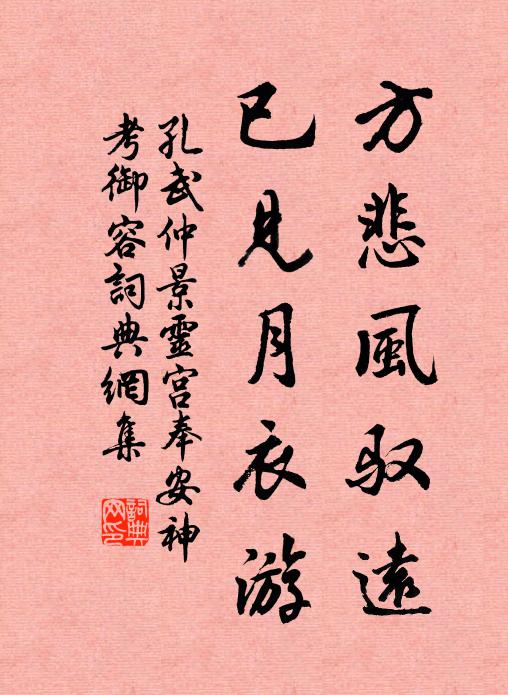 方悲風馭遠
已見月衣游
孔武仲景靈宮奉安神
考御容詞典網集
詞典網印